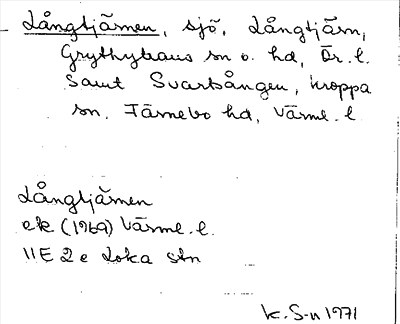 Långtjärnen, sjö, Långtjärn,
Grythyttans sn o. hd, Ör. l.
samt Svartsången, Kroppa
sn. Färnebo hd, Värml. l
Långtjärnen
ek (1969) Värml. l.
11E 2 e Loka stn
K. S-n 1971